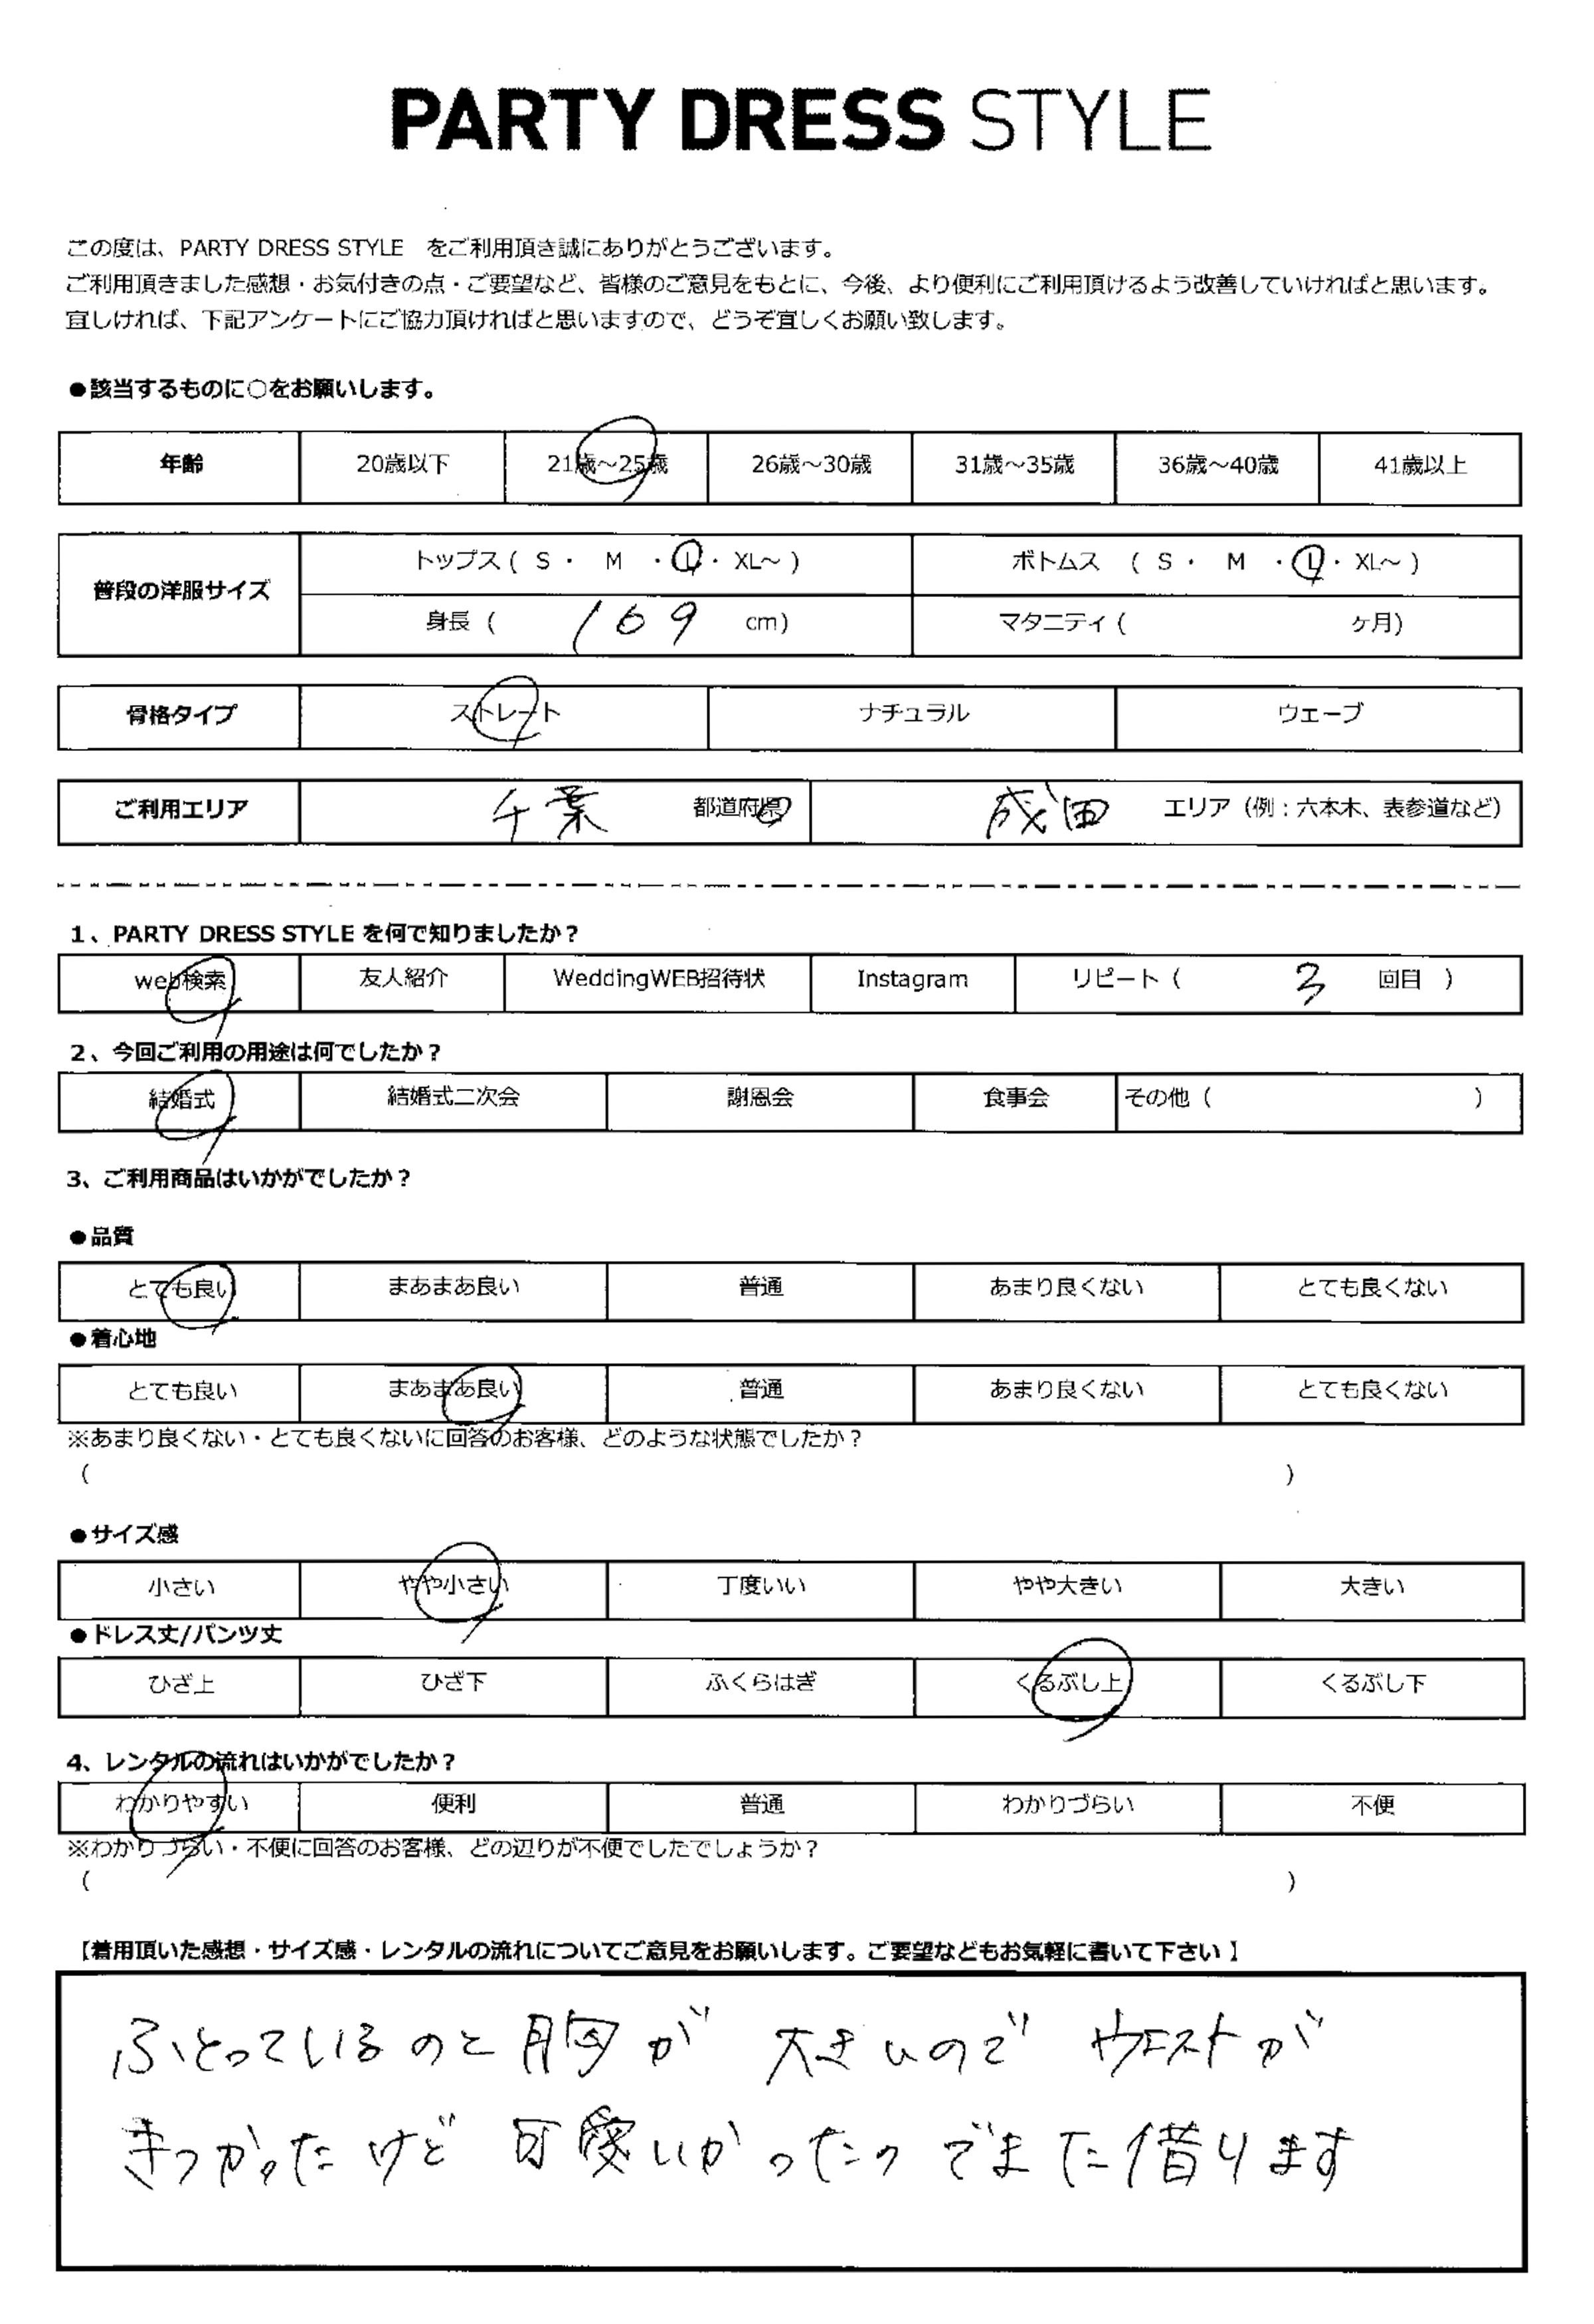 PARTY DRESS STYLE
この度は、PARTY DRESS STYLE をご利用頂き誠にありがとうございます。
ご利用頂きました感想・お気付きの点・ご要望など、皆様のご意見をもとに、今後、より便利にご利用頂けるよう改善していければと思います。
宜しければ、下記アンケートにご協力頂ければと思いますので、どうぞ宜しくお願い致します。
●該当するものに〇をお願いします。
年齢 20歳以下 21歳～25歳 26歳～30歳 31歳～35歳 36歳～40歳 41歳以上
普段の洋服サイズ トップス ( S ・ M ・ L ・ XL～ ) ボトムス ( S ・ M ・ L ・ XL～ )
身長 ( 169 cm) マタニティ ( ヶ月)
骨格タイプ ストレート ナチュラル ウェーブ
ご利用エリア 千葉 都道府県 成田 エリア（例：六本木、表参道など）
1、PARTY DRESS STYLE を何で知りましたか？
web検索 友人紹介 WeddingWEB招待状 Instagram リピート（ 3 回目 ）
2、今回ご利用の用途は何でしたか？
結婚式 結婚式二次会 謝恩会 食事会 その他（ ）
3、ご利用商品はいかがでしたか？
●品質
とても良い まあまあ良い 普通 あまり良くない とても良くない
●着心地
とても良い まあまあ良い 普通 あまり良くない とても良くない
※あまり良くない・とても良くないに回答のお客様、どのような状態でしたか？
（ ）
●サイズ感
小さい やや小さい 丁度いい やや大きい 大きい
●ドレス丈/パンツ丈
ひざ上 ひざ下 ふくらはぎ くるぶし上 くるぶし下
4、レンタルの流れはいかがでしたか？
わかりやすい 便利 普通 わかりづらい 不便
※わかりづらい・不便に回答のお客様、どの辺りが不便でしたでしょうか？
（ ）
【着用頂いた感想・サイズ感・レンタルの流れについてご意見をお願いします。ご要望などもお気軽に書いて下さい】
ふとっているのと胸が 大きいので ウエストが
きつかったけど 可愛いかったのでまた借ります